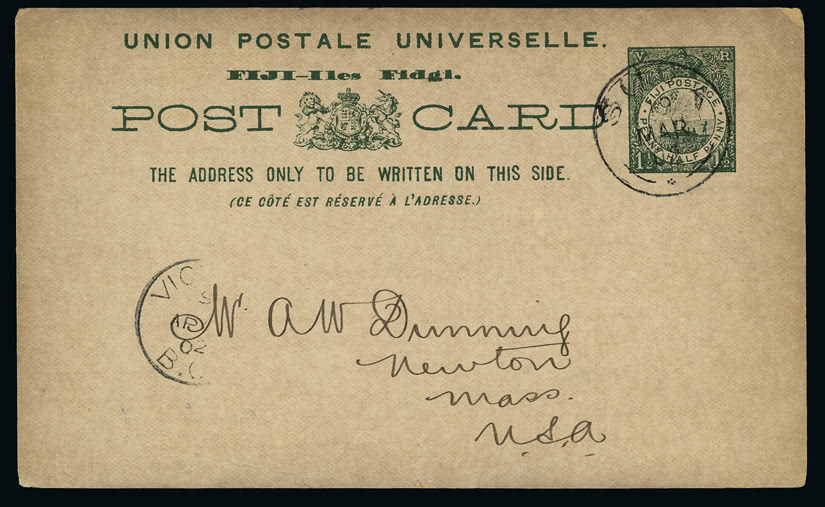 UNION POSTALE UNIVERSELLE.
FIJI–Iles Fidgi.
POST CARD
THE ADDRESS ONLY TO BE WRITTEN ON THIS SIDE.
(CE CÔTÉ EST RÉSERVÉ À L'ADRESSE.)
V R
FIJI POSTAGE
PENNY HALF PENNY
MAR
VIC
02
B.C
Mr. A W Dunning
Newton
Mass.
U.S.A